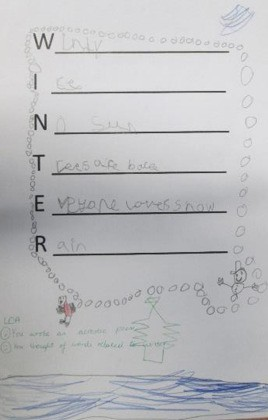 Windy
Ice
No Sun
Trees are bare
Everyone loves snow
Rain
LOA
① You wrote an acrostic poem
② You thought of words related to winter